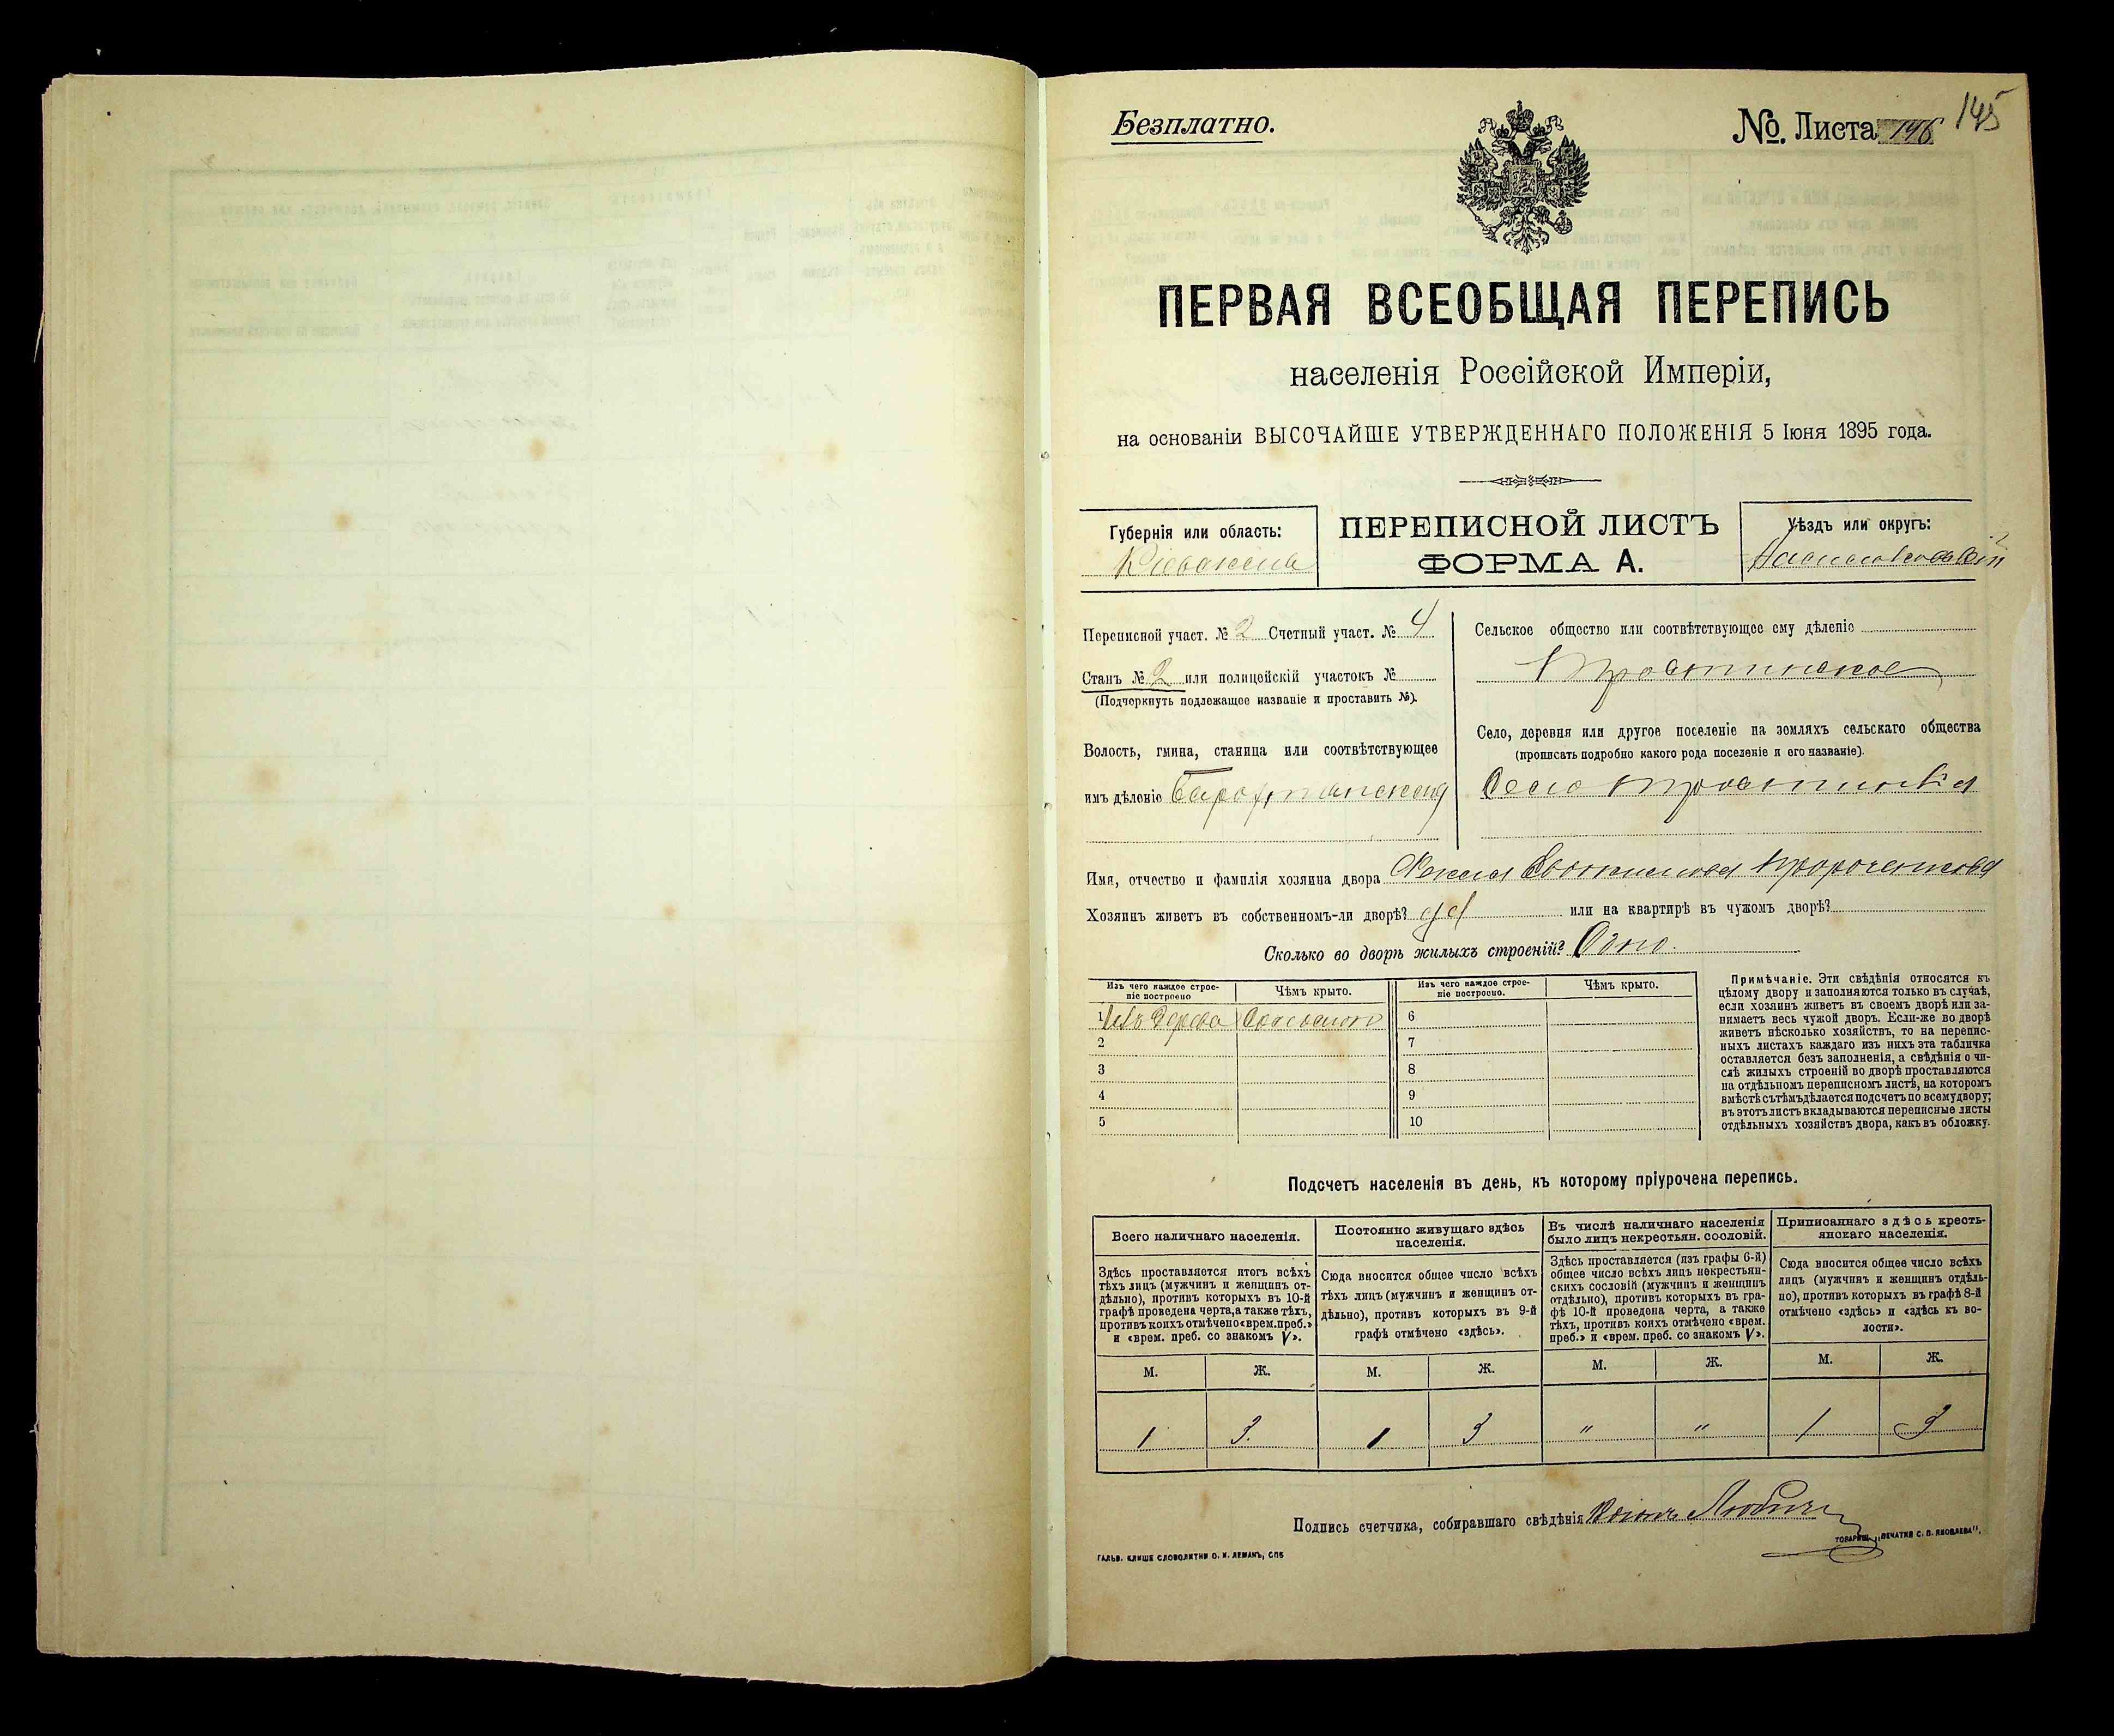 Безплатно.
№. Листа 146 145
ПЕРВАЯ ВСЕОБЩАЯ ПЕРЕПИСЬ
населенія Россійской Имперіи,
на основаніи ВЫСОЧАЙШЕ УТВЕРЖДЕННАГО ПОЛОЖЕНІЯ 5 Іюня 1895 года.
Губернія или область:
Кіевская
ПЕРЕПИСНОЙ ЛИСТЪ
ФОРМА А.
Уѣздъ или округъ:
Васильковскій
Переписной участ. № 2 Счетный участ. № 4
Станъ № 2 или полицейскій участокъ №
(Подчеркнуть подлежащее названіе и проставить №).
Волость, гмина, станица или соотвѣтствующее
имъ дѣленіе
Сельское общество или соотвѣтствующее ему дѣленіе
Тростинское
Село, деревня или другое поселеніе на земляхъ сельскаго общества
(прописать подробно какого рода поселеніе и его названіе).
Село Тростинка
Имя, отчество и фамилія хозяина двора
Хозяинъ живетъ въ собственномъ-ли дворѣ? да или на квартирѣ въ чужомъ дворѣ?
Сколько во дворѣ жилыхъ строеній? Одно.
Изъ чего каждое строе-
ніе построено
Чѣмъ крыто.
Изъ чего каждое строе-
ніе построено.
Чѣмъ крыто.
1 Изъ дерева Соломою 6
2 7
3 8
4 9
5 10
Примѣчаніе. Эти свѣдѣнія относятся къ
цѣлому двору и заполняются только въ случаѣ,
если хозяинъ живетъ въ своемъ дворѣ или за-
нимаетъ весь чужой дворъ. Если-же во дворѣ
живетъ нѣсколько хозяйствъ, то на перепис-
ныхъ листахъ каждаго изъ нихъ эта табличка
оставляется безъ заполненія, а свѣдѣнія о чи-
слѣ жилыхъ строеній во дворѣ проставляются
на отдѣльномъ переписномъ листѣ, на которомъ
вмѣстѣ съ тѣмъ дѣлается подсчетъ по всему двору;
въ этотъ листъ вкладываются переписные листы
отдѣльныхъ хозяйствъ двора, какъ въ обложку.
Подсчетъ населенія въ день, къ которому пріурочена перепись.
Всего наличнаго населенія.
Здѣсь проставляется итогъ всѣхъ
тѣхъ лицъ (мужчинъ и женщинъ от-
дѣльно), противъ которыхъ въ 10-й
графѣ проведена черта, а также тѣхъ,
противъ коихъ отмѣчено «врем. преб.»
и «врем. преб. со знакомъ V».
Постоянно живущаго здѣсь
населенія.
Сюда вносится общее число всѣхъ
тѣхъ лицъ (мужчинъ и женщинъ от-
дѣльно), противъ которыхъ въ 9-й
графѣ отмѣчено «здѣсь».
Въ числѣ наличнаго населенія
было лицъ некрестьян. сословій.
Здѣсь проставляется (изъ графы 6-й)
общее число всѣхъ лицъ некрестьян-
скихъ сословій (мужчинъ и женщинъ
отдѣльно), противъ которыхъ въ гра-
фѣ 10-й проведена черта, а также
тѣхъ, противъ коихъ отмѣчено «врем.
преб.» и «врем. преб. со знакомъ V».
Приписаннаго здѣсь кресть-
янскаго населенія.
Сюда вносится общее число всѣхъ
лицъ (мужчинъ и женщинъ отдѣль-
но), противъ которыхъ въ графѣ 8-й
отмѣчено «здѣсь» и «здѣсь къ во-
лости».
М. Ж. М. Ж. М. Ж. М. Ж.
1 3. 1 3 " " 1 3
Подпись счетчика, собиравшаго свѣдѣнія
ГАЛЬВ. КЛИШЕ СЛОВОЛИТНИ О. И. ЛЕМАНЪ, СПБ
ТОВАРИЩ. „ПЕЧАТНЯ С. П. ЯКОВЛЕВА“.